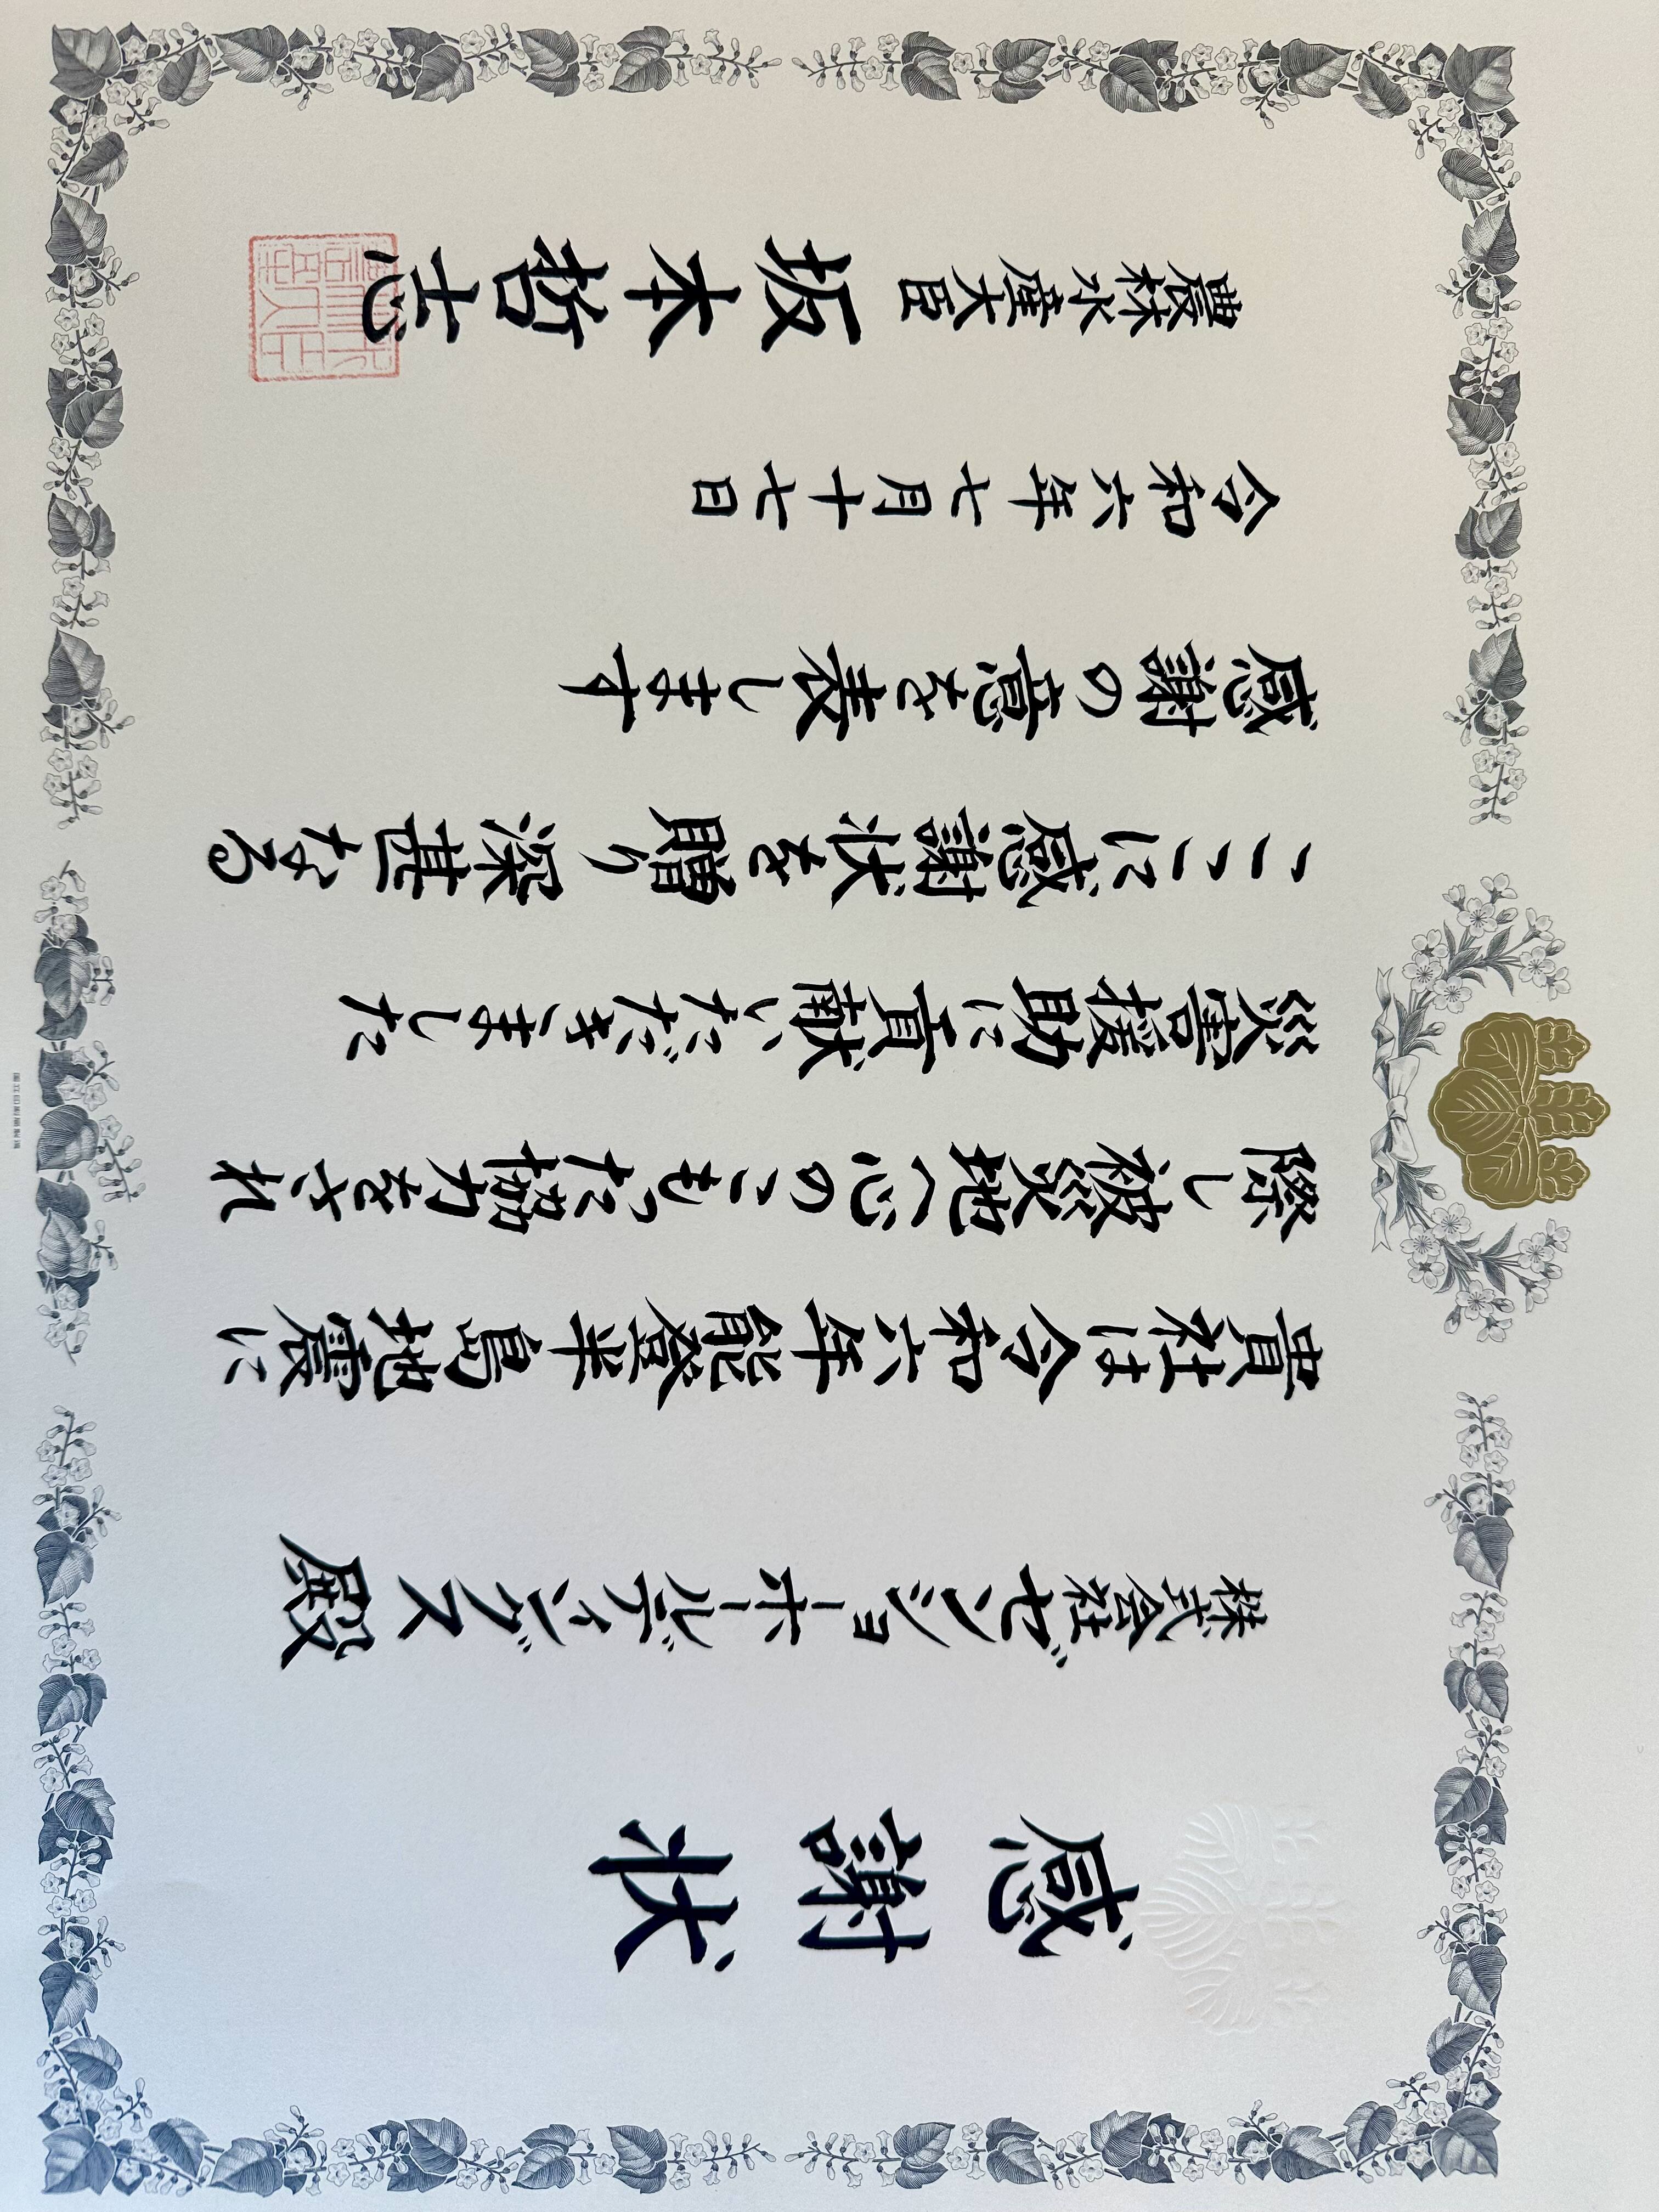 感謝状
株式会社ゼンショーホールディングス 殿
貴社は令和六年能登半島地震に
際し被災地へ心のこもった協力をされ
災害援助に貢献いただきました
ここに感謝状を贈り深甚なる
感謝の意を表します
令和六年七月十七日
農林水産大臣 坂本哲志